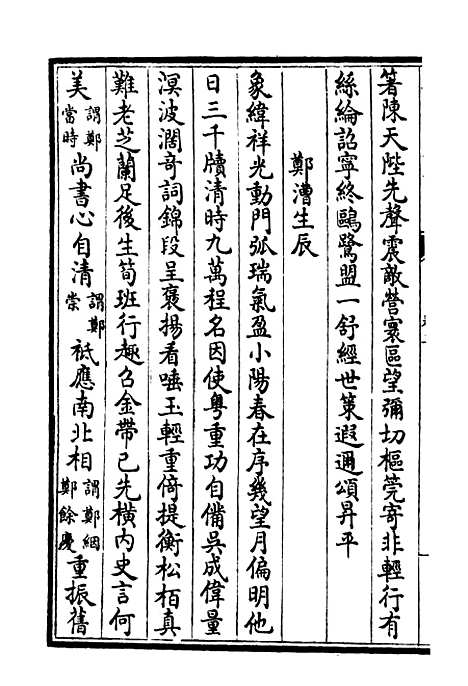 箸陳天陛先聲震敵營寰區望彌切樞筦寄非輕行有
絲綸詔寧終鷗鷺盟一舒經世策遐邇頌昇平
鄭漕生辰
象緯祥光動門弧瑞氣盈小陽春在序幾望月偏明他
日三千牘清時九萬程名因使粤重功自備吳成偉量
溟波濶奇詞錦段呈褒揚看唾玉輕重倚提衡松栢真
難老芝蘭足後生筍班行趣召金帶已先橫内史言何
美謂鄭當時尚書心自清謂鄭崇祗應南北相謂鄭絪鄭餘慶重振舊